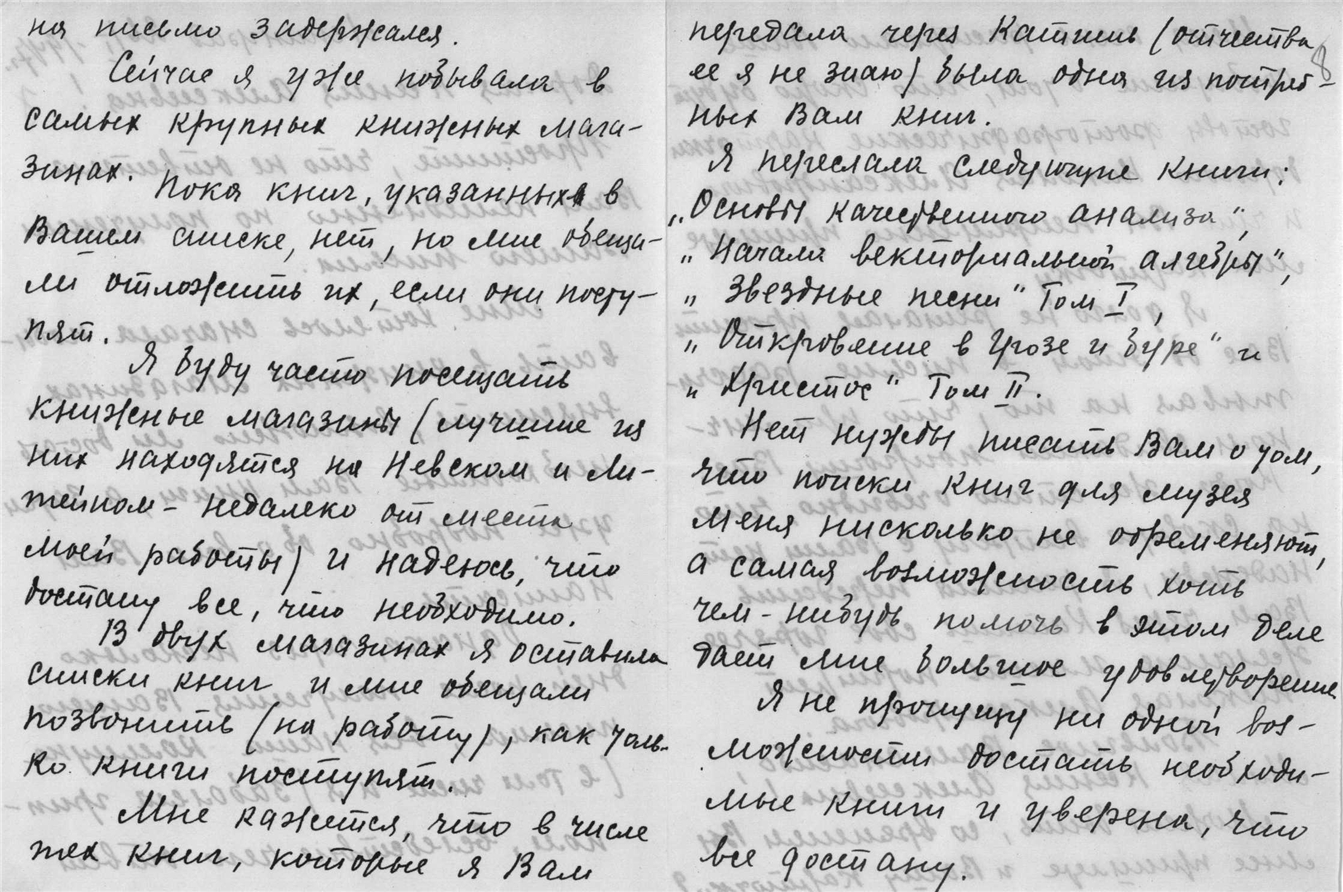 на письмо задержался.
Сейчас я уже побывала в
самых крупных книжных мага-
зинах. Пока книг, указанных в
Вашем списке, нет, но мне обеща-
ли отложить их, если они посту-
пят.
Я буду часто посещать
книжные магазины (лучшие из
них находятся на Невском и Ли-
тейном – недалеко от места
моей работы) и надеюсь, что
достану все, что необходимо.
В двух магазинах я оставила
списки книг и мне обещали
позвонить (на работу), как толь-
ко книги поступят.
Мне кажется, что в числе
тех книг, которые я Вам
передала через Катюшь (отчества
ее я не знаю) была одна из потреб-
ных Вам книг.
Я переслала следующие книги:
„Основы качественного анализа",
„Начала векториальной алгебры",
„Звездные песни" Том I,
„Откровение в грозе и буре" и
„Христос" Том II.
Нет нужды писать Вам о том,
что поиски книг для музея
меня нисколько не обременяют,
а самая возможность хоть
чем-нибудь помочь в этом деле
дает мне большое удовлетворение
Я не пропущу ни одной воз-
можности достать необходи-
мые книги и уверена, что
все достану.
8